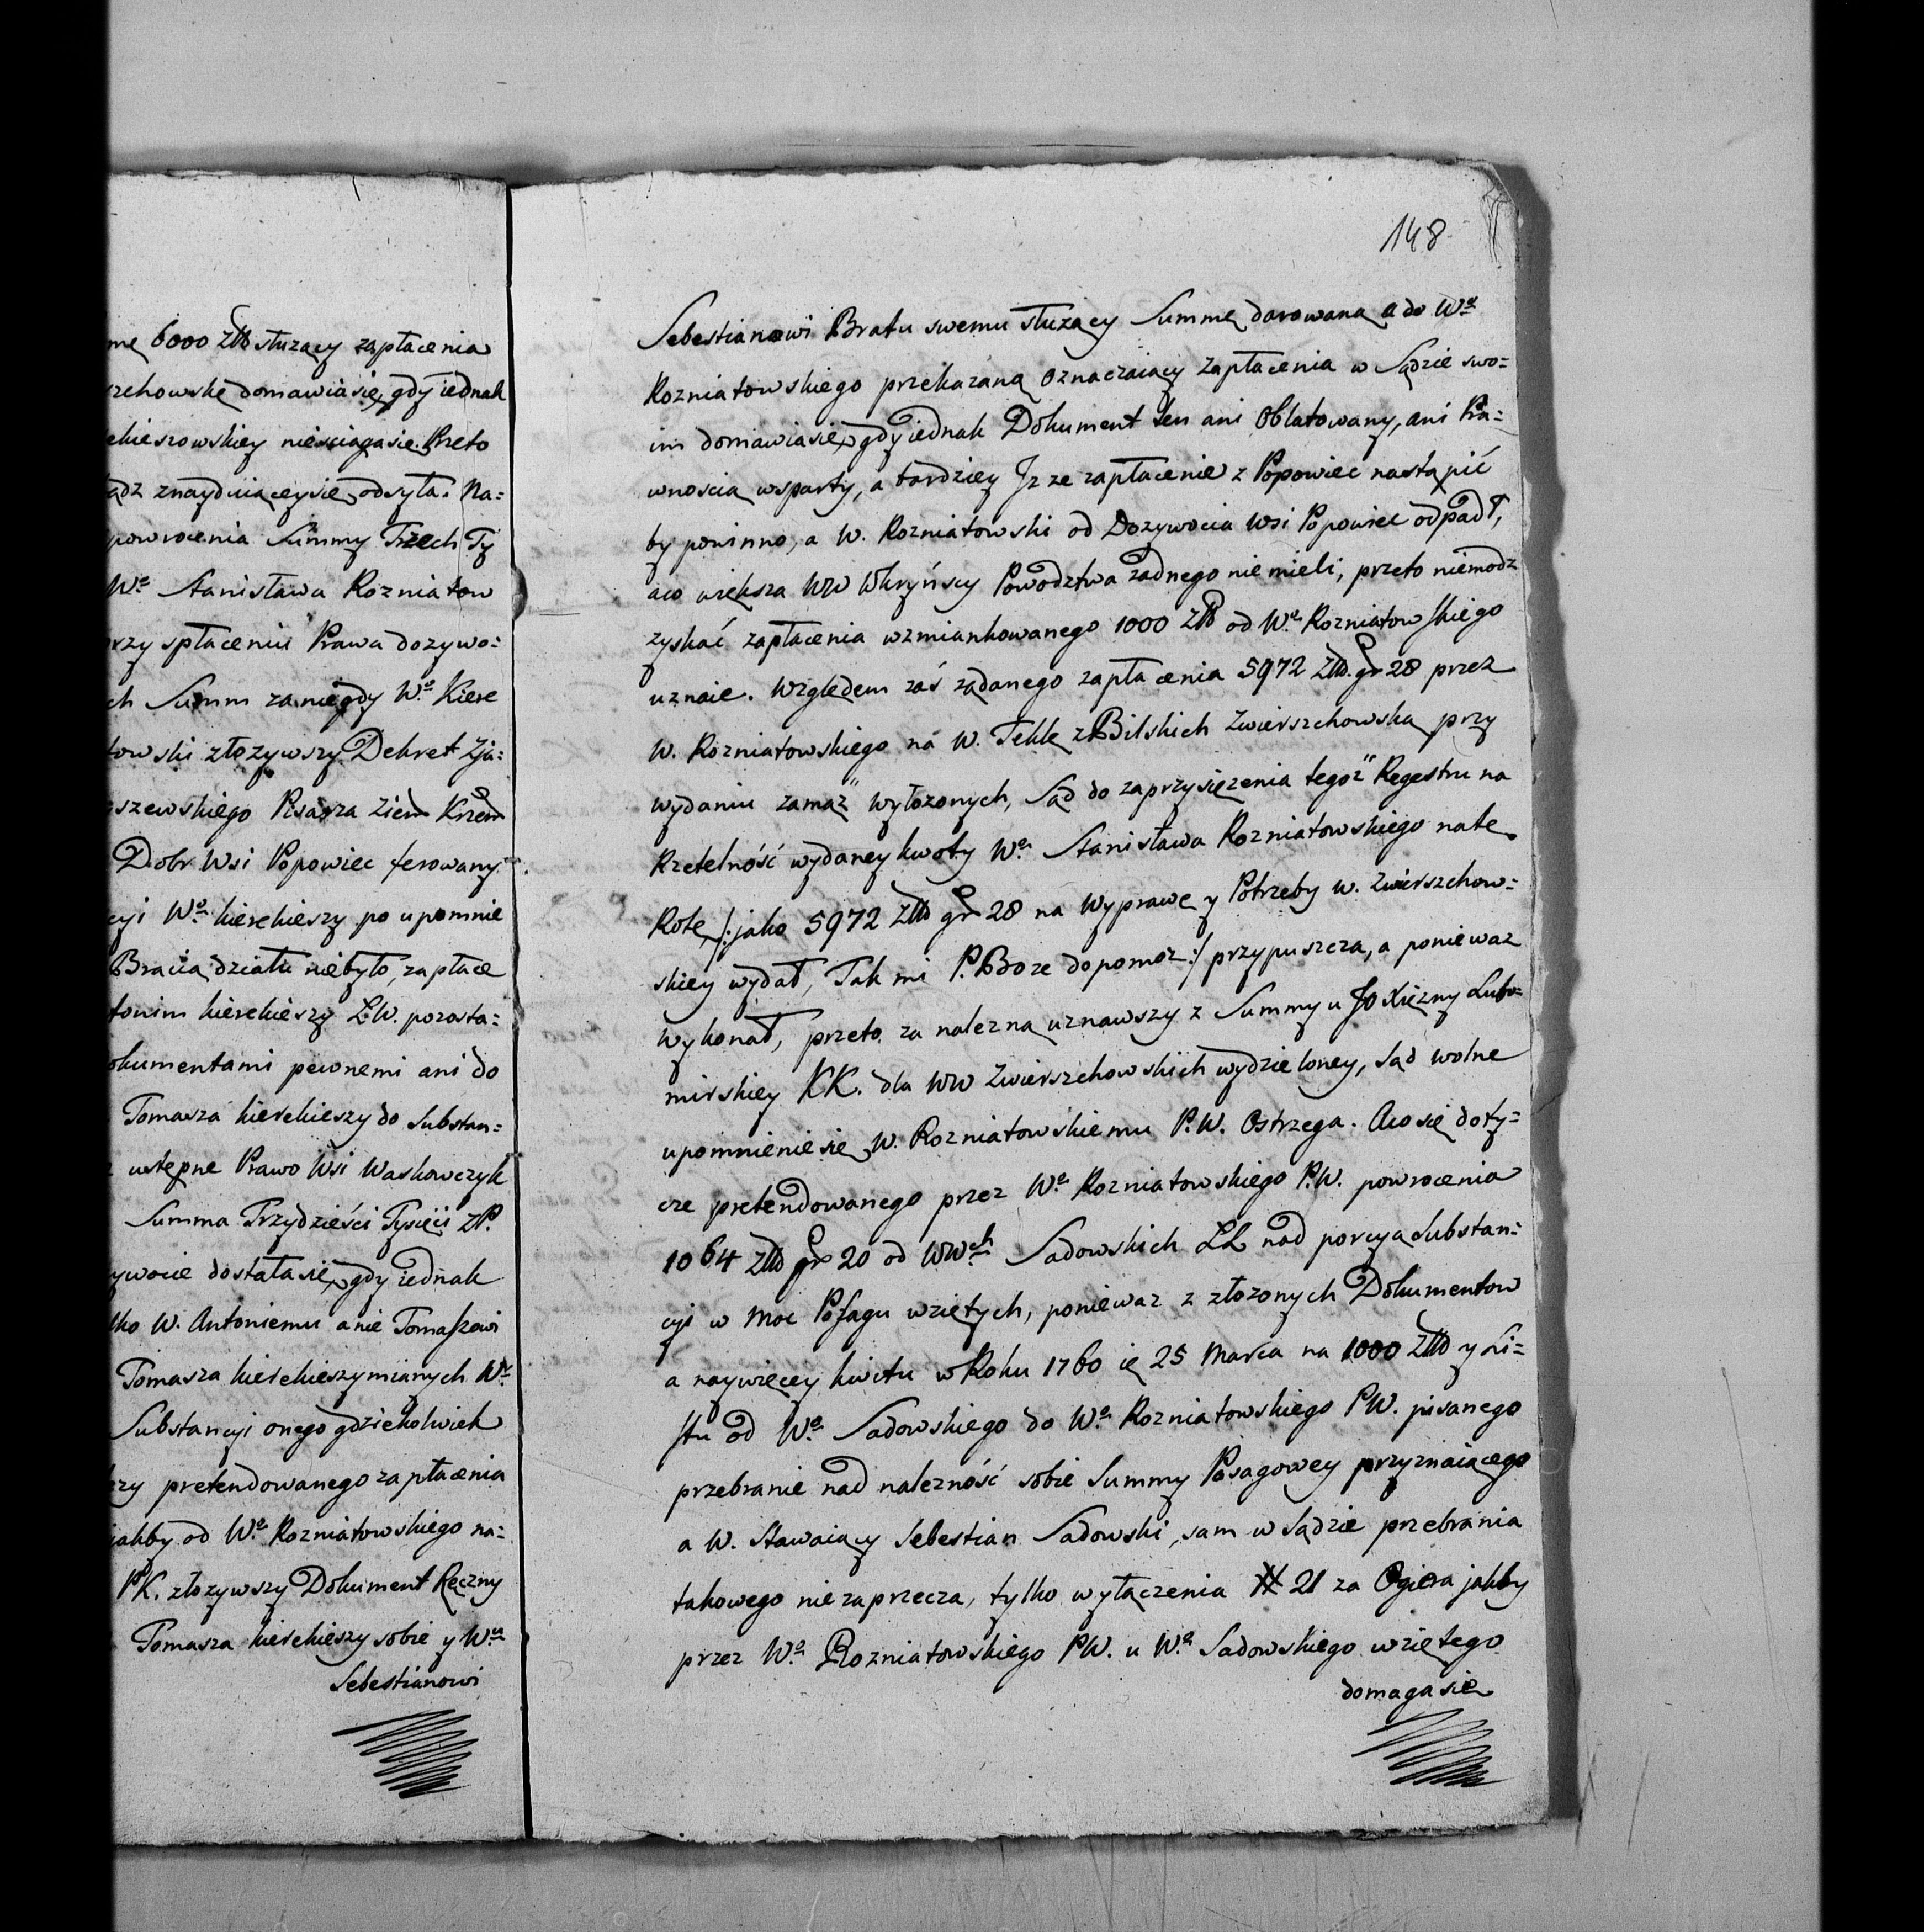 me 6000 Złł służący zapłacenia
rzchowskę domawiasię, gdy iednak
ekieszowskiey nieściągasię. Przeto
ądz znayduiąceysię, odsyła. Na=
powrocenia Summy Trzech Ty
Wº Stanisława Rozniatow
rzy spłaceniu Prawa dozywo=
ch Summ zaniegdy Wº Kiere
towski złożywszy Dekret Zja=
szewskiego Pisarza Ziem Krzem
Dobr Wsi Popowiec ferowany
cyi Wº kierekieszy po upomnie
Bracia działu niebyło, zapłace
tonim kierekieszy L.W. pozosta=
okumentami pewnemi ani do
Tomasza kierekieszy do Substan=
ustępne Prawo Wsi Waskowczyk
Summa Trzydzieści Tysięii ZP.
ywocie dostałasię, gdy iednak
lko W. Antoniemu a nie Tomaszowi
Tomasza kierekieszymianych Wº
Substancyi onego gdziekolwiek
rzy pretendowanego zapłacenia
jakby od Wº Rozniatowskiego na=
PK. złożywszy Dokument Ręczny
Tomasza kierekieszy sobie y Wu
Sebestianowi
148
Sebestianowi Bratu swemu służący Summę darowaną a do Wº
Rozniatowskiego przekazaną oznaczaiący Zapłacenia w Sądzie swo=
im domawiasię, gdy iednak Dokument ten ani Oblatowany, ani Pra=
wnoscią wsparty, a bardziey Jz ze zapłacenie z Popowiec nastąpić
by powinno, a W. Rozniatowski od Dozywocia Wsi Popowiec odpadł,
aco większa WW Wkryńscy Powodztwa żadnego nie mieli, przeto niemodz
zyskać zapłacenia wzmiankowanego 1000 Złł od Wº Rozniatowskiego
uznaie. Względem zaś żądanego zapłacenia 5972 Złł. gr 28 przez
W. Rozniatowskiego na W. Teklę z Bilskich Zwierszchowską przy
wydaniu zamąż wyłożonych, Sąd do zaprzysiężenia tegoż Regestru na
Rzetelność wydaney kwoty Wº Stanisława Rozniatowskiego na tę
Rotę /: jako 5972 Złł gr 28 na Wyprawę y Potrzeby W. Zwierszchow=
skiey wydał, Tak mi P. Boze dopomoz :/ przypuszcza, a poniewaz
wykonał, przeto za nalezną uznawszy z Summy u JO Xiężny Lubo=
mirskiey KK. dla WW Zwierszchowskich wydzieloney, Sąd wolne
upomnieniesię W. Rozniatowskiemu P.W. Ostrzega. Aco się doty=
cze pretendowanego przez Wº Rozniatowskiego P.W. powrocenia
1064 Złł gr 20 od WWch Sadowskich LL nad porcyą Substan=
cyi w moc Posagu wziętych, poniewaz z złożonych Dokumentow
a naywięcey kwitu w Roku 1760 ię 25 Marca na 1000 Złł y Li=
stu od Wº Sadowskiego do Wº Rozniatowskiego PW. pisanego
przebranie nad należność sobie Summy Posagowey przyznaiącego
a W. Stawaiący Sebestian Sadowski, sam w Sądzie przebrania
takowego nie zaprzecza, tylko wyłączenia 21 za Ogiera jakby
przez Wº Rozniatowskiego PW. u Wº Sadowskiego wziętego
domaga się